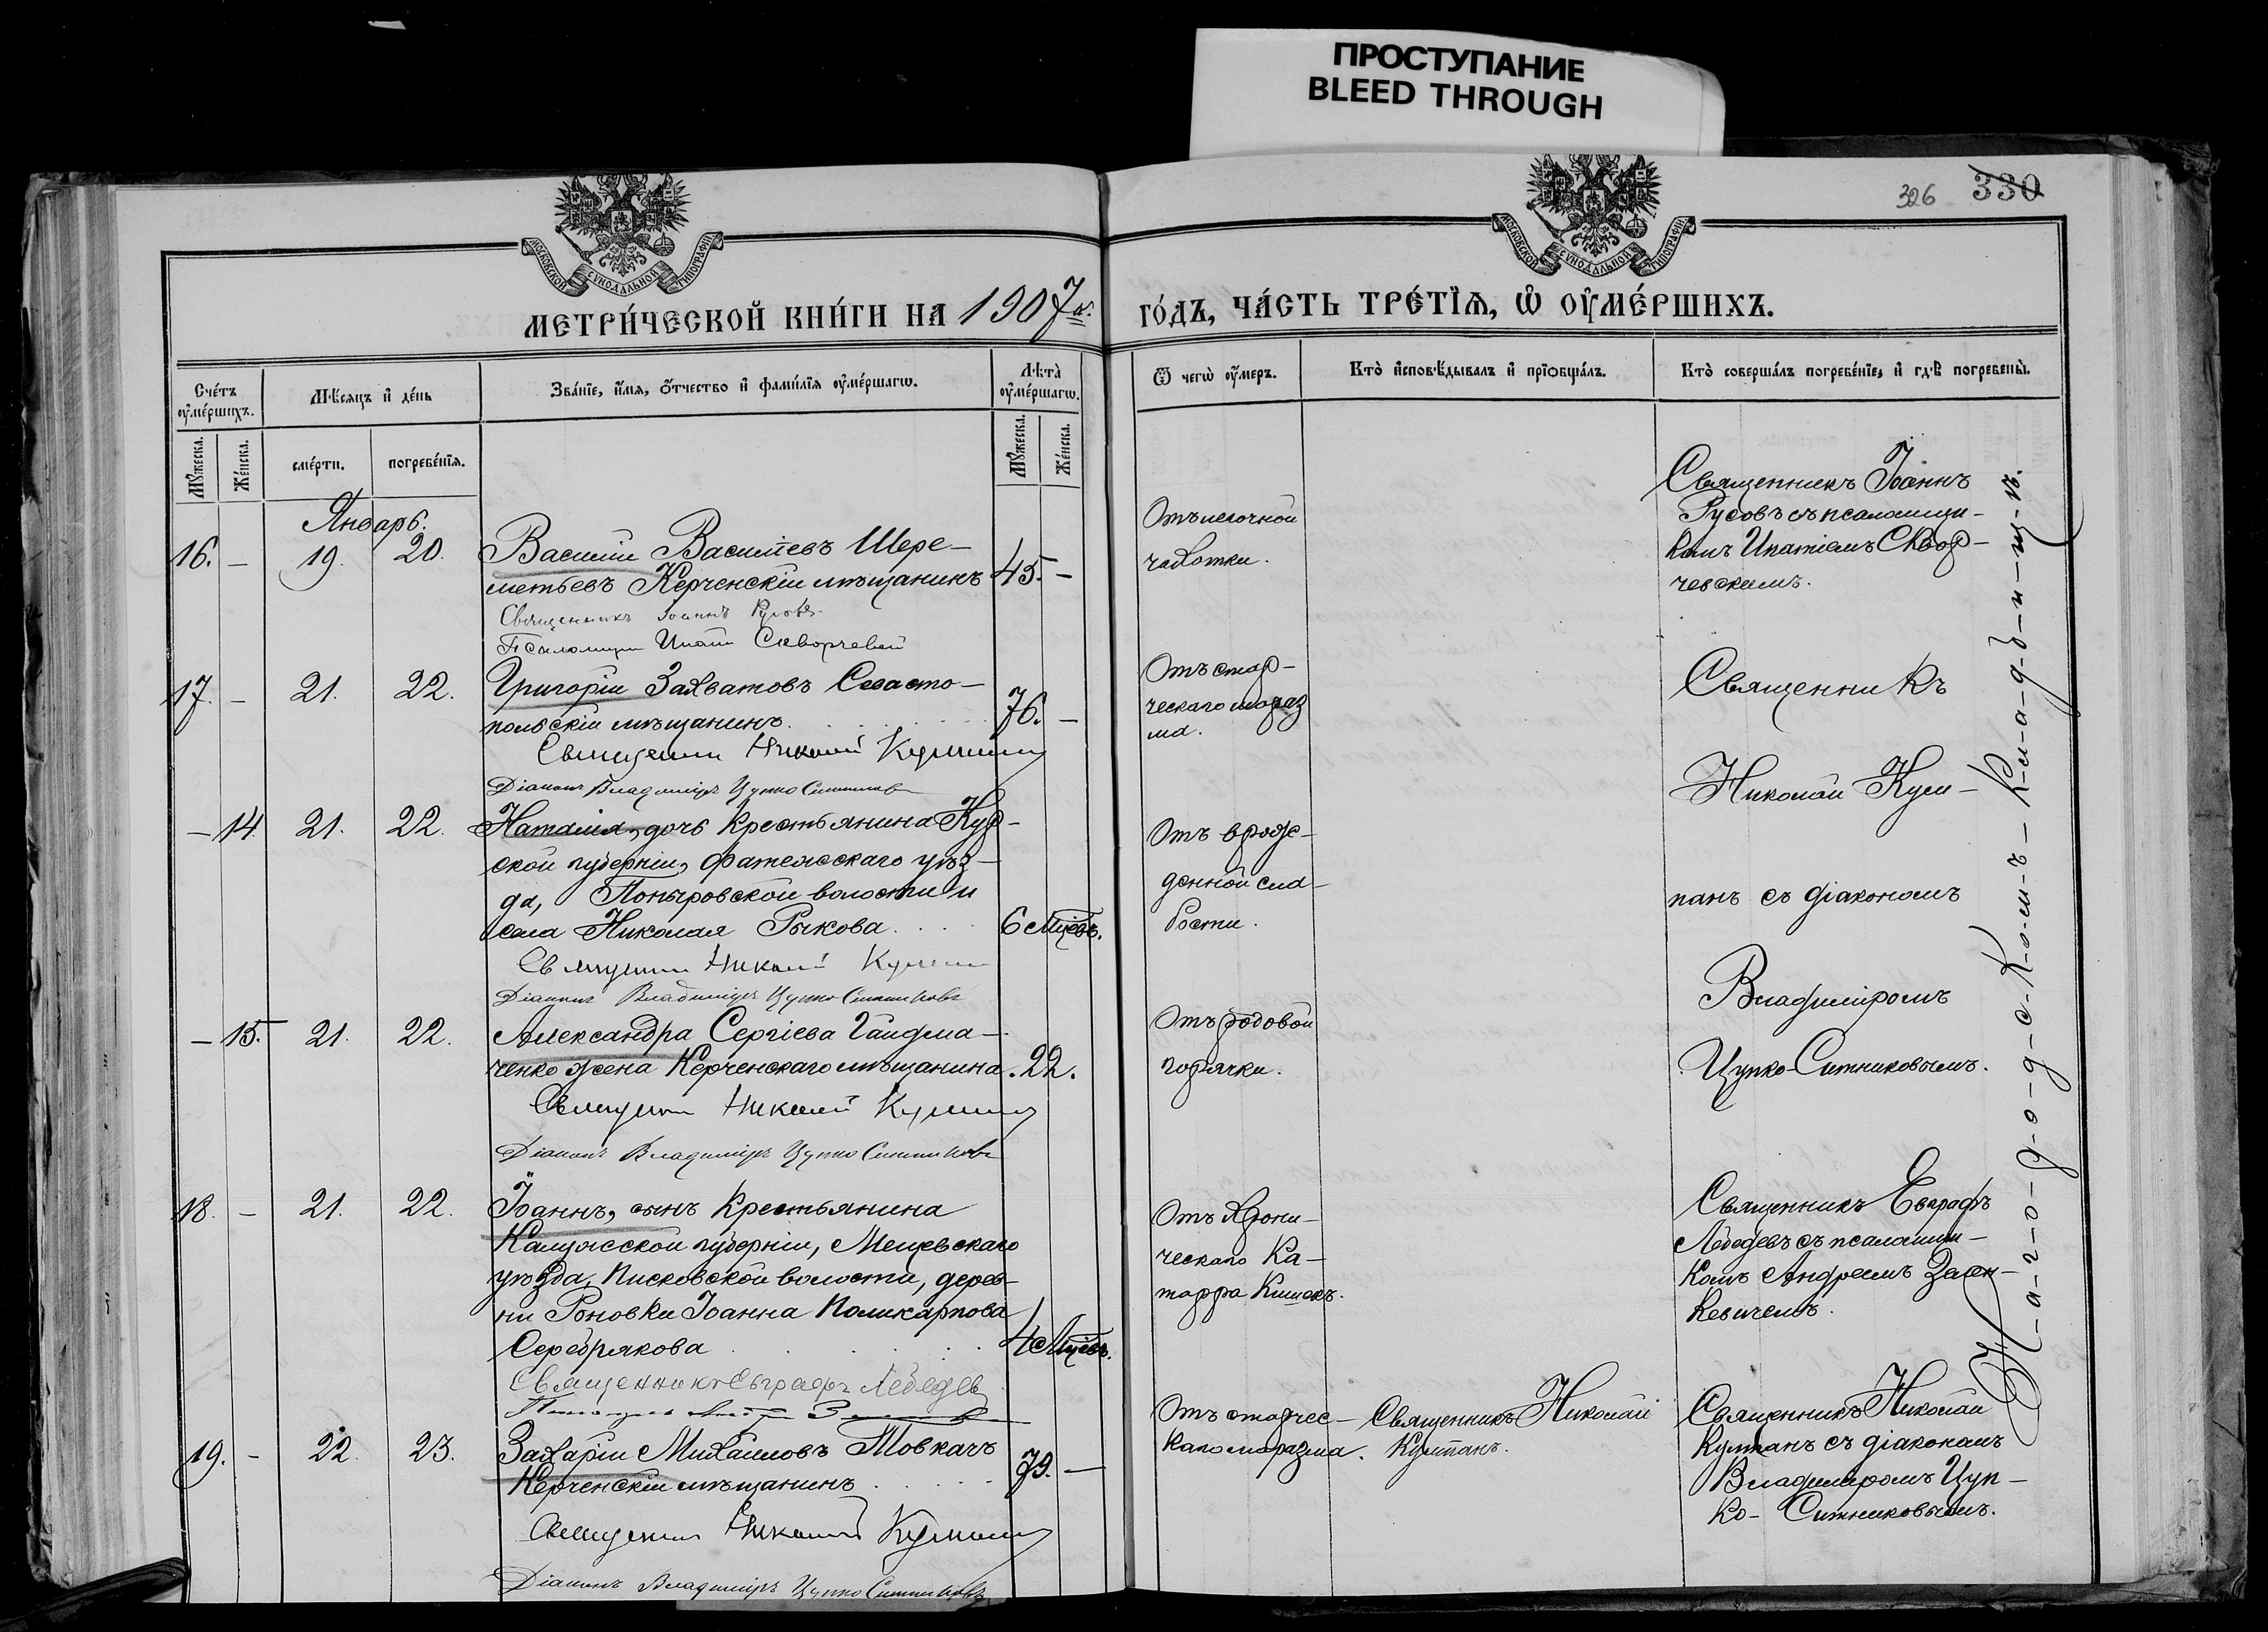 ПРОСТУПАНИЕ
BLEED THROUGH
326 330
МОСКОВСКОЙ СѴНОДАЛЬНОЙ ТИПОГРАФІИ
МОСКОВСКОЙ СѴНОДАЛЬНОЙ ТИПОГРАФІИ
МЕТРИ́ЧЕСКОЙ КНИ́ГИ НА 1907 г.
ГО́ДЪ, ЧА́СТЬ ТРЕ́ТЇѦ, Ѡ҆ ОУ҆МЕ́РШИХЪ.
Сче́тъ оу҆ме́ршихъ.
Мѣ́сяцъ и҆ де́нь
Зва́нїе, и҆́мя, ѻ҆́тчество и҆ фами́лїя оу҆ме́ршагѡ.
Лѣта̀ оу҆ме́ршагѡ.
Ѿ чегѡ̀ оу҆́меръ.
Кто̀ и҆сповѣ́дывалъ и҆ прїѻбща́лъ.
Кто̀ соверша́лъ погребе́нїе, и҆ гдѣ̀ погребены̀.
Мꙋ́жеска.
Же́нска.
сме́рти.
погребе́нїя.
Мꙋ́жеска.
Же́нска.
Январь.
16. — 19. 20. Василій Васильевъ Шере-
метьевъ Керченскій мѣщанинъ 45. —
Священникъ Іоаннъ Русовъ
Псаломщи Ипатій
Отъ легочной
чахотки.
Священникъ Іоаннъ
Русовъ съ псаломщи-
комъ Ипатіемъ Сквор-
чевскимъ.
17. — 21. 22. Григорій Захватовъ Севасто-
польскій мѣщанинъ. 76. —
Священник Николай Кулпанъ
Діаконъ Владиміръ Цупко Ситников
Отъ стар-
ческаго мараз
ма.
Священникъ
Николай Кул-
панъ съ діакономъ
Владиміромъ
Цупко-Ситниковымъ.
— 14. 21. 22. Наталія, дочь крестьянина Кур-
ской губерніи, Фатежскаго уѣз-
да, Поныровской волости и
села Николая Рыкова. 6 Мцевъ.
Священник Николай Кулпан
Діаконъ Владиміръ Цупко Ситниковъ
Отъ врож-
денной сла-
бости.
— 15. 21. 22. Александра Сергіева Гайдма-
ченко жена Керченскаго мѣщанина. 22.
Священник Николай Кулпанъ
Діаконъ Владиміръ Цупко Ситниковъ
Отъ родовой
горячки.
18. — 21. 22. Іоаннъ, сынъ крестьянина
Калужской губерніи, Мещевскаго
уѣзда, Писковской волости, дерев-
ни Роновки Іоанна Поликарпова
Серебрякова 4 Мцевъ.
Священникъ Евграфъ Лебедев
Отъ хрони-
ческаго ка-
тарра кишекъ.
Священникъ Евграфъ
Лебедевъ съ псаломщи-
комъ Андреемъ Заен-
кевичемъ.
19. — 22. 23. Захарій Михайловъ Товкачъ
Керченскій мѣщанинъ 79. —
Священник Николай Кулпанъ
Діаконъ Владиміръ Цупко Ситниковъ
Отъ старчес-
каго маразма.
Священникъ Николай
Кулпанъ.
Священникъ Николай
Кулпанъ съ діакономъ
Владиміромъ Цуп-
ко- Ситниковымъ.
Н-а-г-о-р-о-д-с-к-о-м-ъ-к-л-а-д-б-и-щ-ѣ.